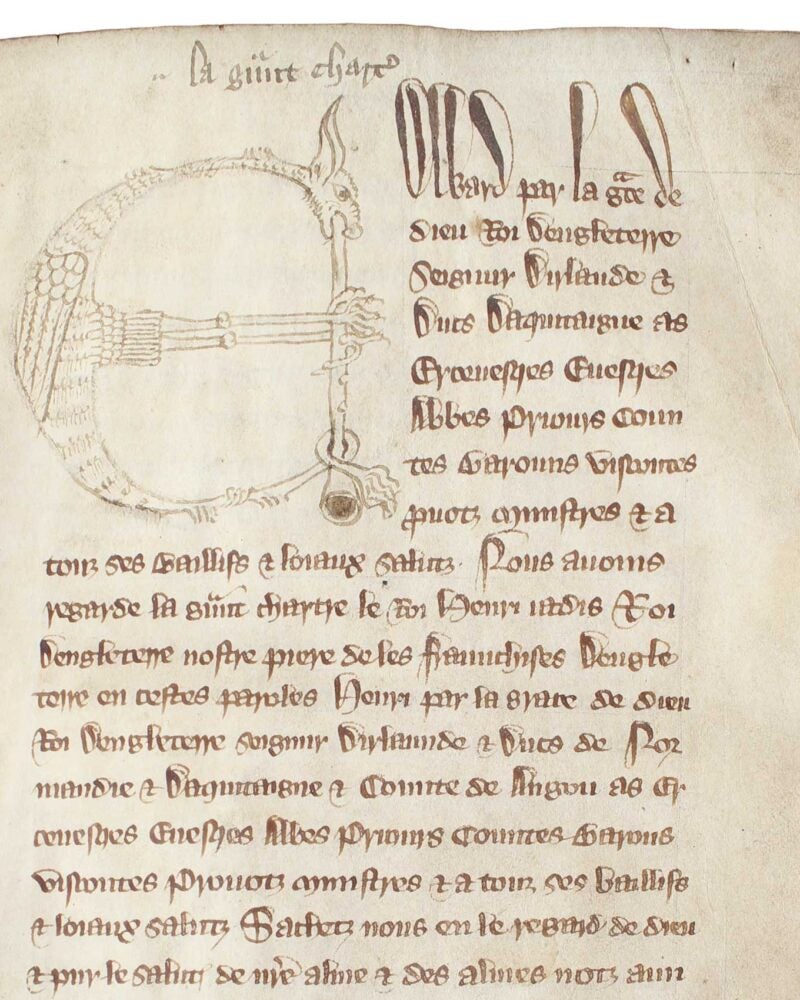 la gnt chart
Edward par la gce de
dieu Roi Dengleterre
Seignur Dirlande &
Ducs Daquitaigne as
Ercevesqes Evesqes
Abbes Priours Coun
tes Barouns viscontes
pvotz ministres & a
touz ses Baillifs & loiaux salutz Nous avoms
regarde la gnt chartre le Roi Henri iadis Roi
Dengleterre nostre piere de les fraunchises Dengle
terre en cestes paroles Henri par la grace de dieu
Roi Dengleterre seignur Dirlaunde & Ducs de Nor
mandie & Daquitaigne & Counte de Angou as Er
cevesqes Evesqes Abbes Priours Countes Barouns
viscontes Provotz ministres & a touz ses Baillifs
& loiaux salutz Sachetz nous en le regard de dieu
& pur le salut de nre alme & des almes notz aun